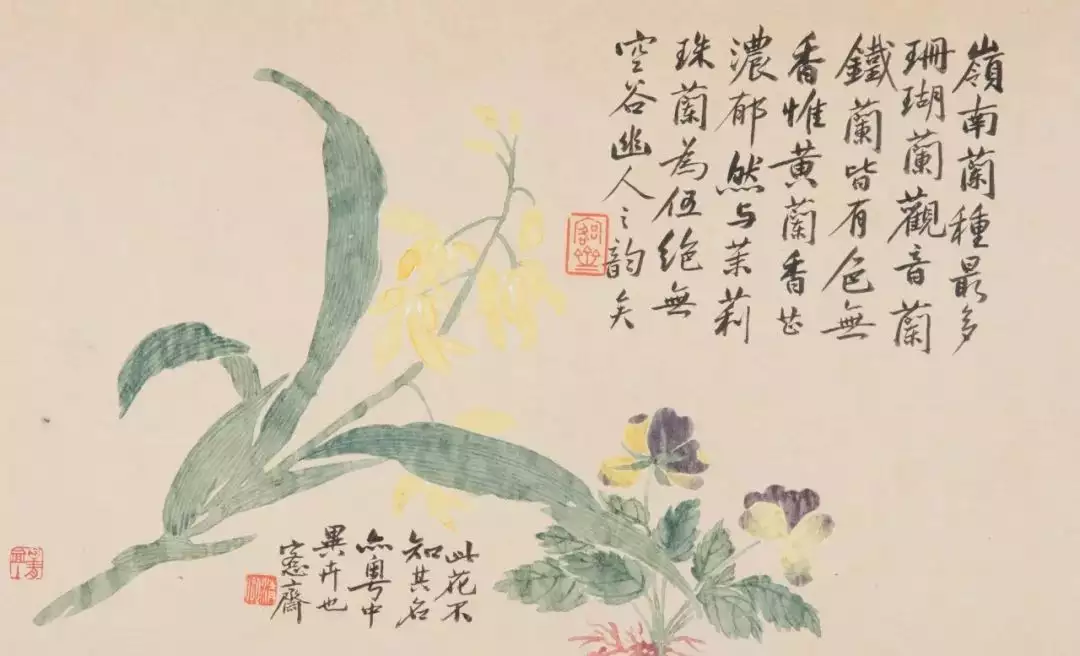 嶺南蘭種最多
珊瑚蘭觀音蘭
鐵蘭皆有色無
香惟黃蘭香甚
濃郁然与茉莉
珠蘭為伍絶無
空谷幽人之韵矣
此花不
知其名
亦粵中
異卉也
愙齋